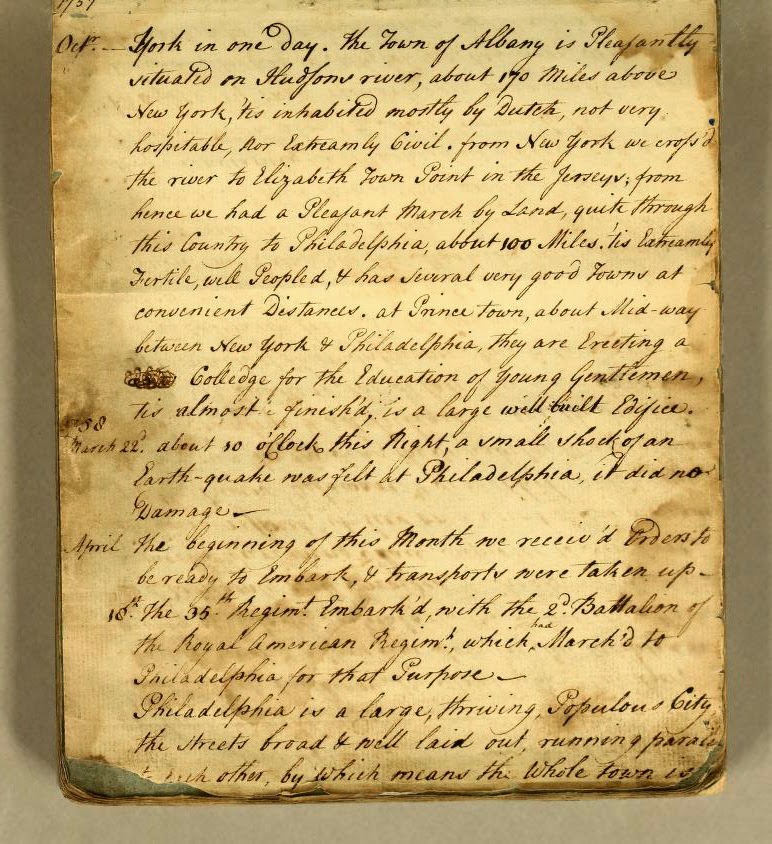 1757
Octr. — York in one day. the Town of Albany is Pleasantly
situated on Hudsons river, about 170 Miles above
New York, 'tis inhabited mostly by Dutch, not very
hospitable, nor Extreamly Civil. from New York we cross'd
the river to Elizabeth Town Point in the Jerseys; from
hence we had a Pleasant March by Land, quite through
this Country to Philadelphia, about 100 Miles. 'tis Extreamly
Fertile, well Peopled, & has several very good Towns at
convenient Distances. at Prince town, about Mid-way
between New York & Philadelphia, they are Erecting a
Colledge for the Education of young Gentlemen,
tis almost finish'd, is a large well built Edifice.
58
March 22d. about 10 o'Clock this Night, a small shock of an
Earth-quake was felt at Philadelphia, it did no
Damage —
April the beginning of this Month we receiv'd Orders to
be ready to Embark, & transports were taken up —
18th. The 35th Regimt. Embark'd, with the 2d. Battalion of
the Royal American Regimt., which had March'd to
Philadelphia for that Purpose —
Philadelphia is a large, thriving, Populous City
the streets broad & well laid out, running paralel
other, by which means the Whole town is